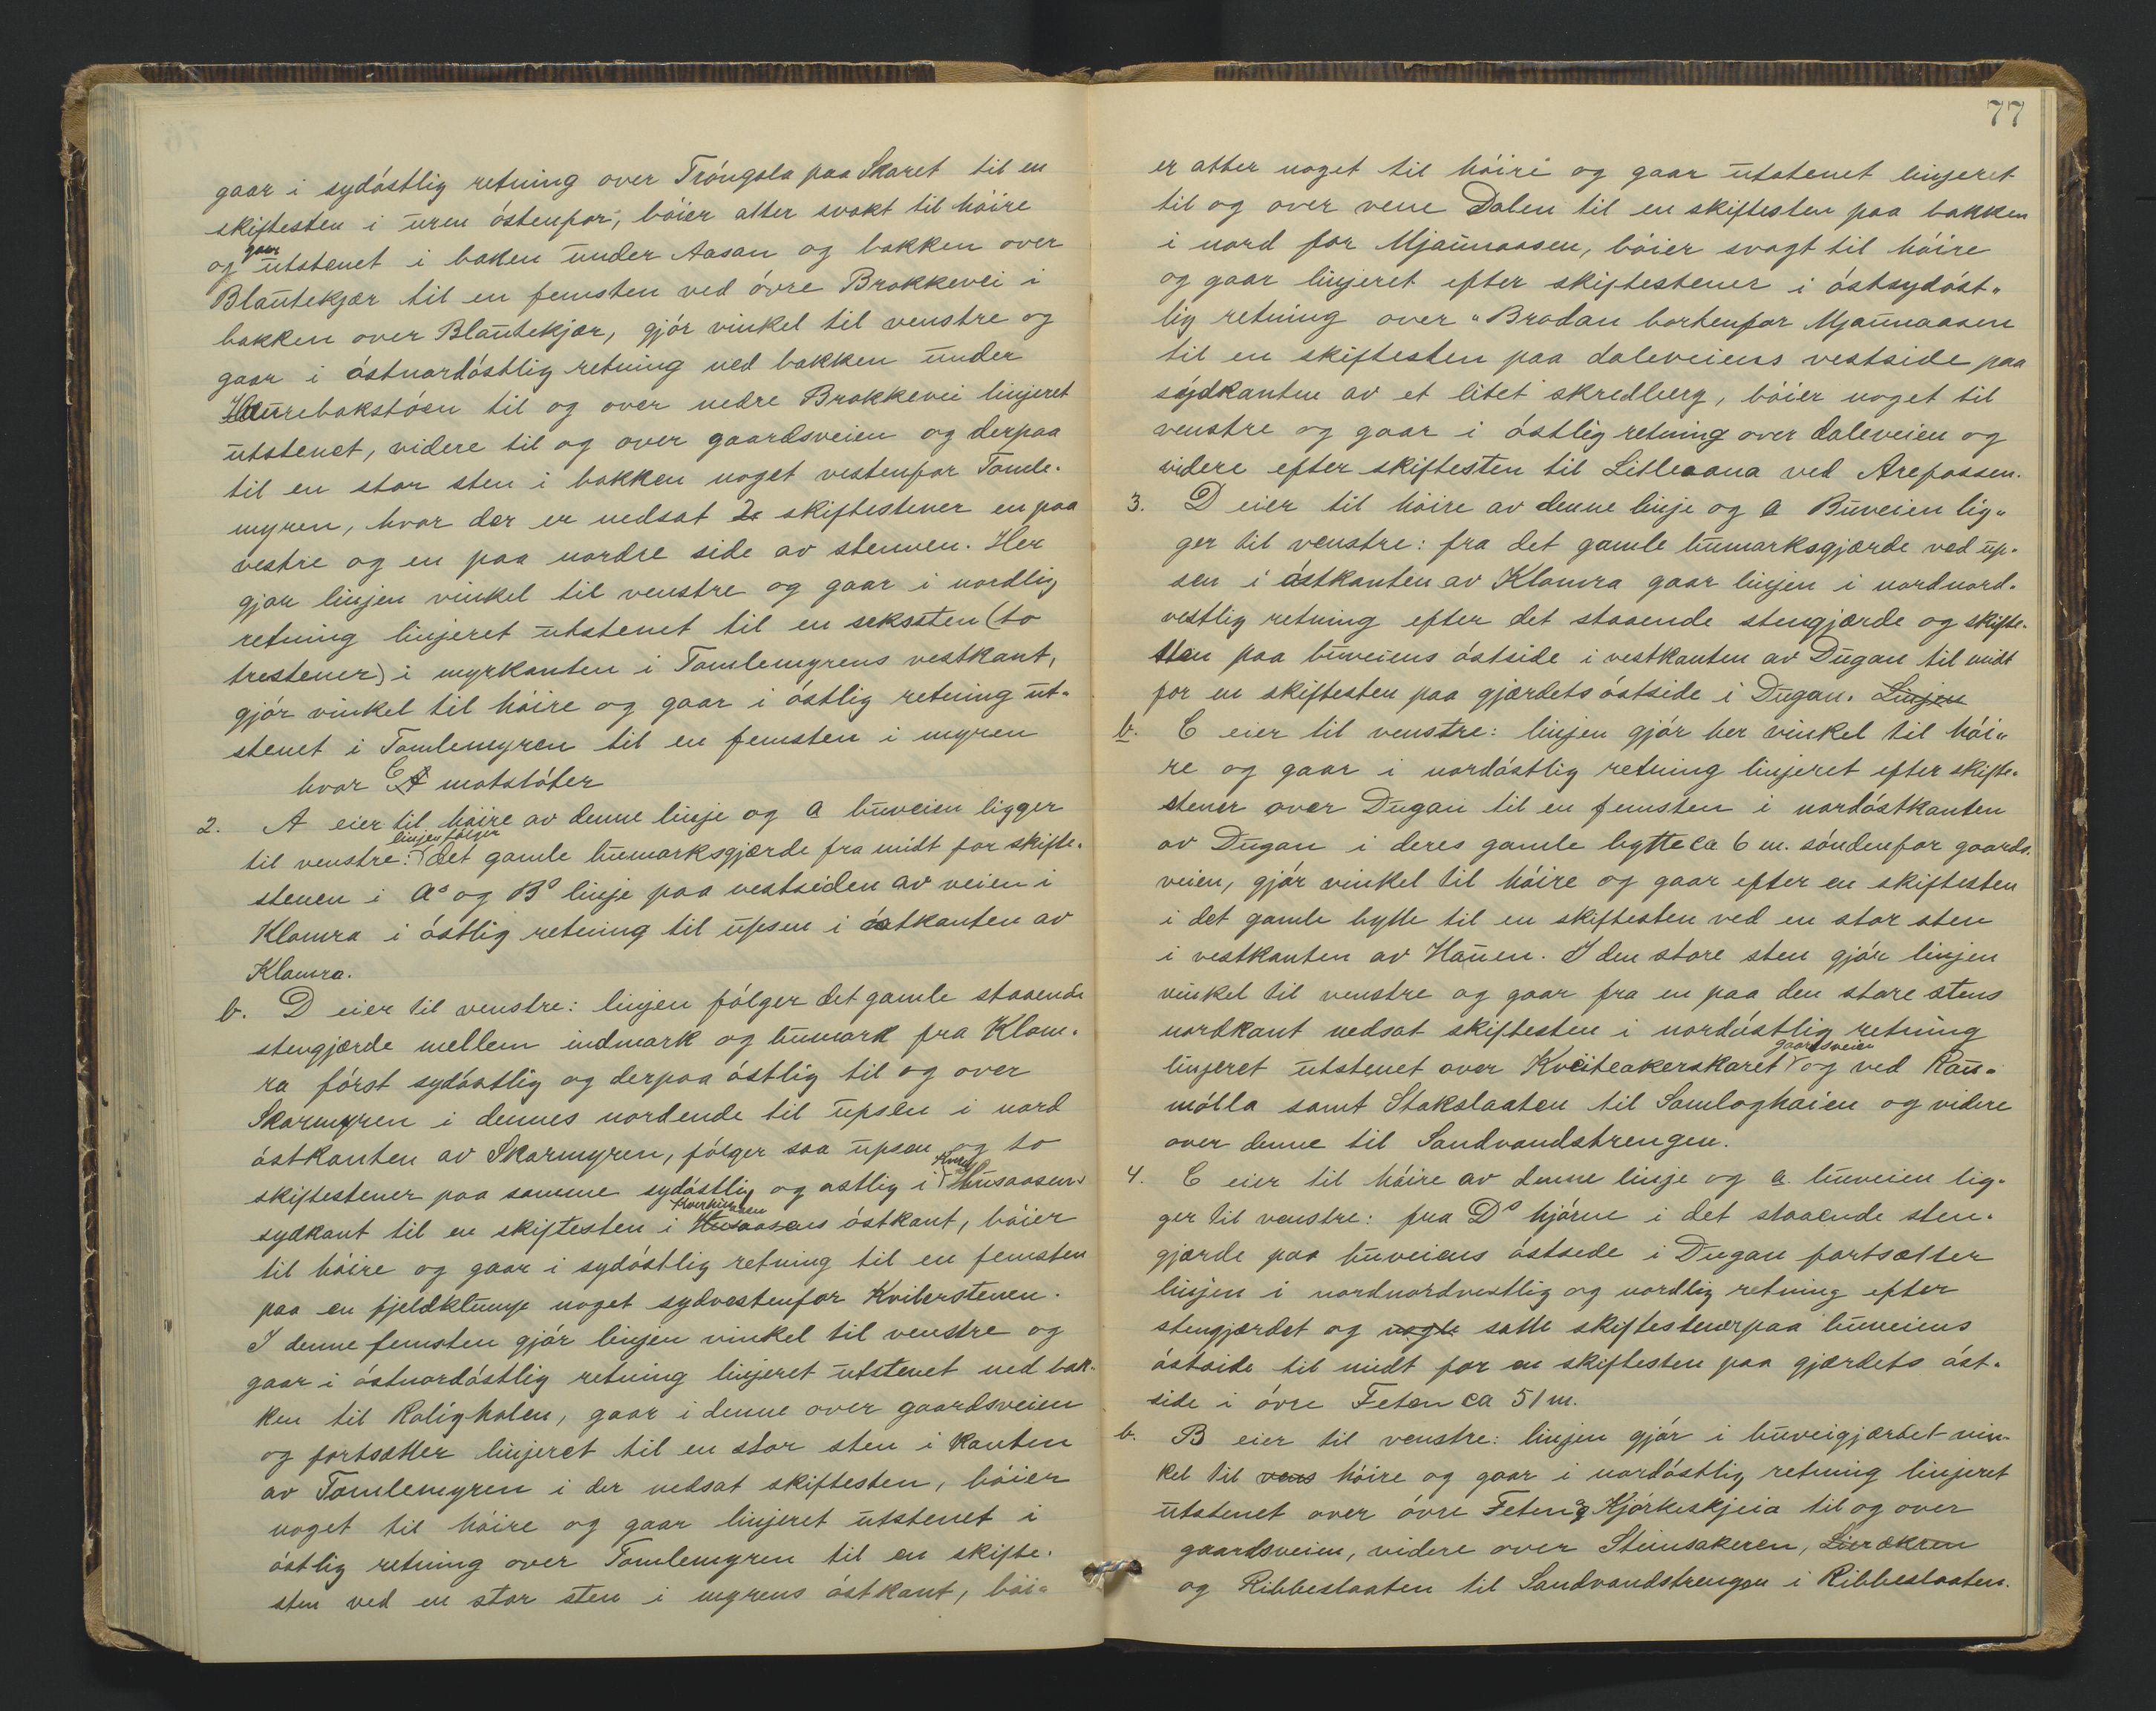 gaar i sydóstlig retning over Tróngola paa Skaret til en
skiftesten i uren óstenfor, bóier atter svakt til hóire
og gaar utstenet i bakken under Aasan og bakken over
Blautekjær til en femsten ved óvre Brokkevei i
bakken over Blautekjær, gjór vinkel til venstre og
gaar i óstnordóstlig retning ned bakken under
Haurebakstóen til og over nedre Brokkevei linjeret
utstenet, videre til og over gaardsveien og derpaa
til en stor sten i bakken noget vestenfor Tomle-
myren, hvor der er nedsat 2 skiftestener en paa
vestre og en paa nordre side av stenen. Her
gjór linjen vinkel til venstre og gaar i nordlig
retning linjeret utstenet til en seksten (to
trestener) i myrkanten i Tomlemyrens vestkant,
gjór vinkel til hóire og gaar i óstlig retning ut-
stenet i Tomlemyren til en femsten i myren
hvor C motstóter
2. A eier til hóire av denne linje og a buveien ligger
til venstre: linjen fólger det gamle bumarksgjærde fra midt for skifte-
stenen i As og Bs linje paa vestsiden av veien i
Klomra i óstlig retning til upsen i óstkanten av
Klomra.
b. D eier til venstre: linjen fólger det gamle staaende
stengjærde mellem indmark og bumark fra Klom-
ra fórst sydóstlig og derpaa óstlig til og over
Skarmyren i dennes nordende til upsen i nord
óstkanten av Skarmyren, fólger saa upsen og to
skiftestener paa samme sydóstlig og óstlig i Husaasens
sydkant til en skiftesten i Husaasens óstkant, bóier
til hóire og gaar i sydóstlig retning til en femsten
paa en fjeldklump noget sydvestenfor Kvilerstenen.
I denne femsten gjór linjen vinkel til venstre og
gaar i óstnordóstlig retning linjeret utstenet ned bak-
ken til Kolighalen, gaar i denne over gaardsveien
og fortsætter linjeret til en stor sten i kanten
av Tomlemyren i der nedsat skiftesten, bóier
noget til hóire og gaar linjeret utstenet i
óstlig retning over Tomlemyren til en skifte-
sten ved en stor sten i myrens óstkant, bói-
77
er atter noget til hóire og gaar utstenet linjeret
til og over vene Dalen til en skiftesten paa bakken
i nord for Mjaunaasen, bóier svagt til hóire
og gaar linjeret efter skiftestener i óstsydóst-
lig retning over "Brodan bortenfor Mjaunaasen
til en skiftesten paa daleveiens vestside paa
sydkanten av et litet skredberg, bóier noget til
venstre og gaar i óstlig retning over daleveien og
videre efter skiftesten til Litleaana ved Arefossen.
3. D eier til hóire av denne linje og a Buveien lig-
ger til venstre: fra det gamle bumarksgjærde ved up-
sen i óstkanten av Klomra gaar linjen i nordnord-
vestlig retning efter det staaende stengjærde og skifte-
sten paa buveiens óstside i vestkanten av Dugan til midt
for en skiftesten paa gjærdets óstside i Dugan. Linjen
b. C eier til venstre: linjen gjór her vinkel til hói-
re og gaar i nordóstlig retning linjeret efter skifte-
stener over Dugan til en femsten i nordóstkanten
av Dugan i deres gamle bytte ca 6 m. sóndenfor gaards-
veien, gjór vinkel til hóire og gaar efter en skiftesten
i det gamle bytte til en skiftesten ved en stor sten
i vestkanten av Hauen. I den store sten gjór linjen
vinkel til venstre og gaar fra en paa den store stens
nordkant nedsat skiftesten i nordóstlig retning
linjeret utstenet over Kveiteakerskaret gaardsveien og ved Rau-
mólla samt Stakslaaten til Samloghaien og videre
over denne til Sandvandstrengen.
4. C eier til hóire av denne linje og a buveien lig-
ger til venstre: fra Ds hjórne i det staaende sten-
gjærde paa buveiens óstside i Dugan fortsætter
linjen i nordnordvestlig og nordlig retning efter
stengjærdet og nogle satte skiftestener paa buveiens
óstside til midt for en skiftesten paa gjærdets óst-
side i óvre Feten ca 51 m.
b. B eier til venstre: linjen gjór i buveigjærdet vin-
kel til vens hóire og gaar i nordóstlig retning linjeret
utstenet over óvre Feten og Kjórkeskjeia til og over
gaardsveien, videre over Steinsakeren,
og Ribbeslaaten til Sandvandstrengen i Ribbeslaaten.